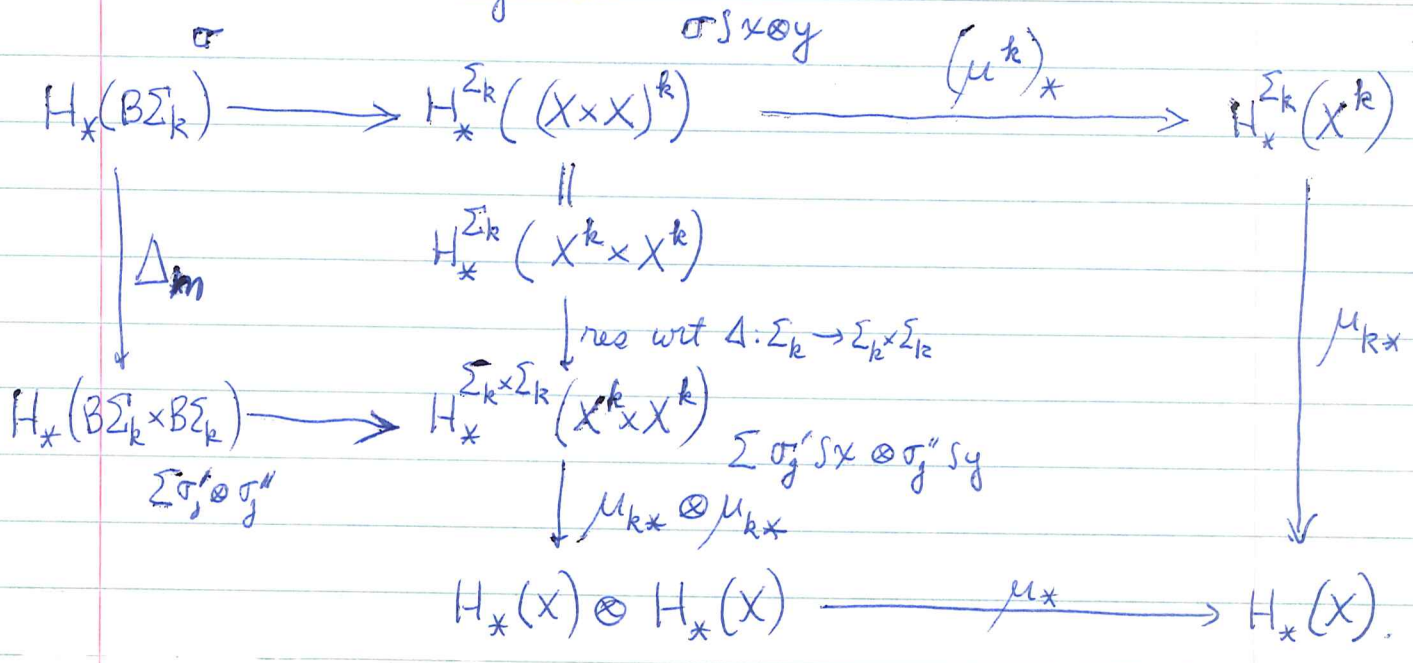 σ σ∫x⊗y (μ^k)_*
H_*(BΣ_k) ⟶ H_*^{Σ_k}((X×X)^k) ⟶ H_*^{Σ_k}(X^k)
||
Δ_m H_*^{Σ_k}(X^k × X^k)
res wrt Δ: Σ_k → Σ_k×Σ_k μ_{k*}
H_*(BΣ_k×BΣ_k) ⟶ H_*^{Σ_k×Σ_k}(X^k×X^k)
Σσ_j'⊗σ_j'' Σ σ_j'∫x ⊗ σ_j''∫y
μ_{k*} ⊗ μ_{k*}
H_*(X) ⊗ H_*(X) ⟶ μ_* H_*(X).